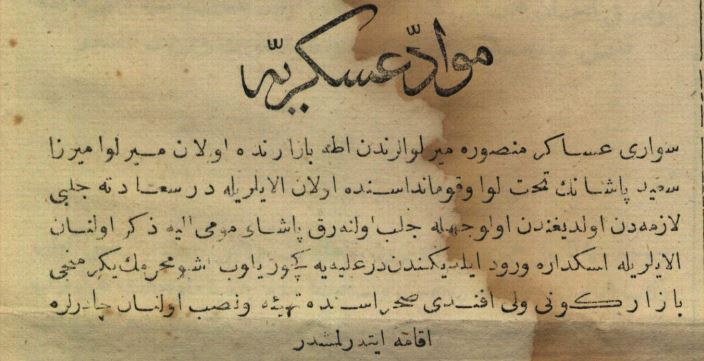 موادّ عسكريّه
سوارى عساكر منصوره ميرلوالرندن اطه بازارنده اولان ميرلوا ميرزا
سعيد پاشانك تحت لوا وقومانداسنده اولان الايلريله درسعادته جلبى
لازمه‌دن اولديغندن اولوجهله جلب اولنه‌رق پاشاى مومى اليه ذكر اولنان
الايلريله اسكداره ورود ايلديكندن درعليه‌يه كچوريلوب اشبو محرمك يكرمنجى
بازار كونى ولى افندى صحراسنده تهيئه ونصب اولنان چادرلره
اقامه ايتدرلمشدر